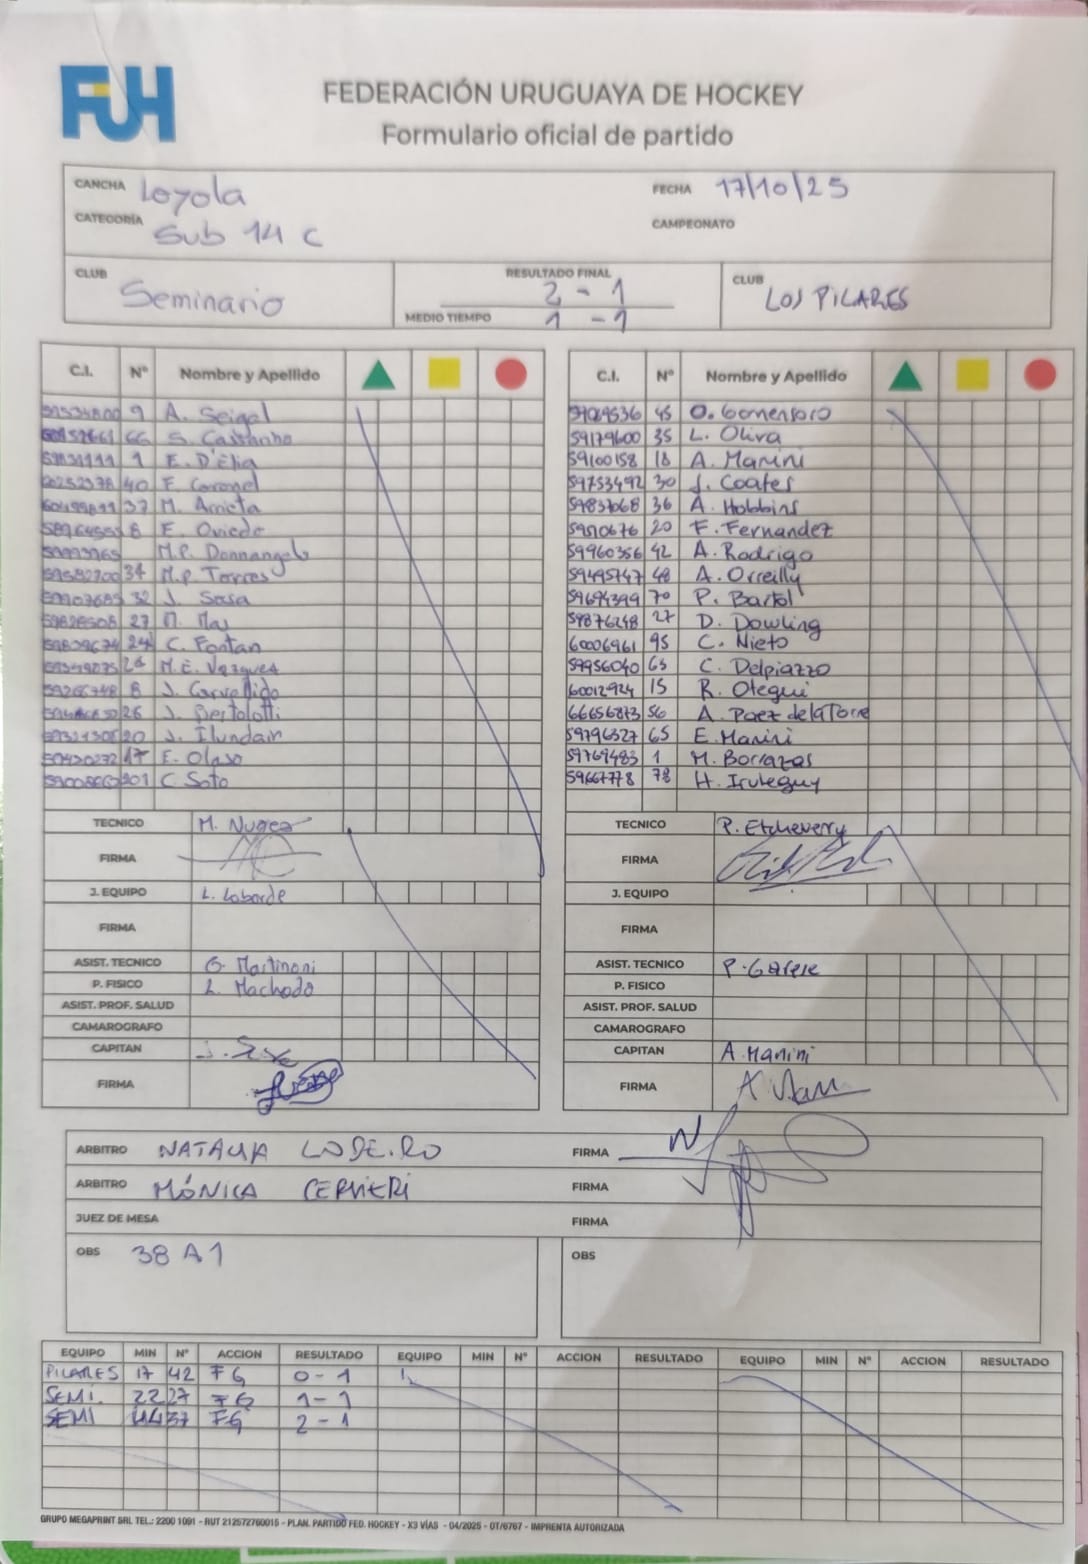 FUH
FEDERACIÓN URUGUAYA DE HOCKEY
Formulario oficial de partido
CANCHA Loyola FECHA 17/10/25
CATEGORÍA Sub 14 C CAMPEONATO
CLUB Seminario RESULTADO FINAL 2 - 1 CLUB LOS PILARES
MEDIO TIEMPO 1 - 1
C.I. Nº Nombre y Apellido C.I. Nº Nombre y Apellido
9 A. Seigal 45 O. Gomensoro
66 S. Castanho 59179600 35 L. Oliva
1 E. D'Elia 59100158 18 A. Manini
40 F. Coronel 59753492 30 J. Coates
37 M. Arrieta 59837068 36 A. Hobbins
8 E. Oviedo 59510676 20 F. Fernandez
M.P. Donnangelo 59960356 42 A. Rodrigo
34 M.P. Torres 59495747 48 A. Orreilly
32 J. Sosa 59694399 70 P. Bartol
27 M. Mas 59876248 27 D. Dowling
24 C. Fontan 60006961 95 C. Nieto
M.E. Vazquez 59956040 63 C. Delpiazzo
8 J. Carvallido 60012924 15 R. Otegui
26 J. Bertolotti 66656873 56 A. Paez de la Torre
20 J. Ilundain 59796327 65 E. Manini
17 E. Olaso 59769483 1 M. Borrazas
201 C. Soto 59667778 78 H. Iruleguy
TECNICO M. Nuñez TECNICO P. Etcheverry
FIRMA FIRMA
J. EQUIPO L. Laborde J. EQUIPO
FIRMA FIRMA
ASIST. TECNICO G. Martinoni ASIST. TECNICO P. Garese
P. FISICO L. Machado P. FISICO
ASIST. PROF. SALUD ASIST. PROF. SALUD
CAMAROGRAFO CAMAROGRAFO
CAPITAN CAPITAN A. Manini
FIRMA FIRMA
ARBITRO NATALIA LODEIRO FIRMA
ARBITRO MÓNICA CERVIERI FIRMA
JUEZ DE MESA FIRMA
OBS 38 A1 OBS
EQUIPO MIN Nº ACCION RESULTADO EQUIPO MIN Nº ACCION RESULTADO EQUIPO MIN Nº ACCION RESULTADO
PILARES 17 42 FG 0 - 1
SEMI. 22 27 FG 1 - 1
SEMI 44 37 FG 2 - 1
GRUPO MEGAPRINT SRL TEL.: 2200 1091 - RUT 212572760015 - PLAN. PARTIDO FED. HOCKEY - X3 VÍAS - 04/2025 - OT/6767 - IMPRENTA AUTORIZADA